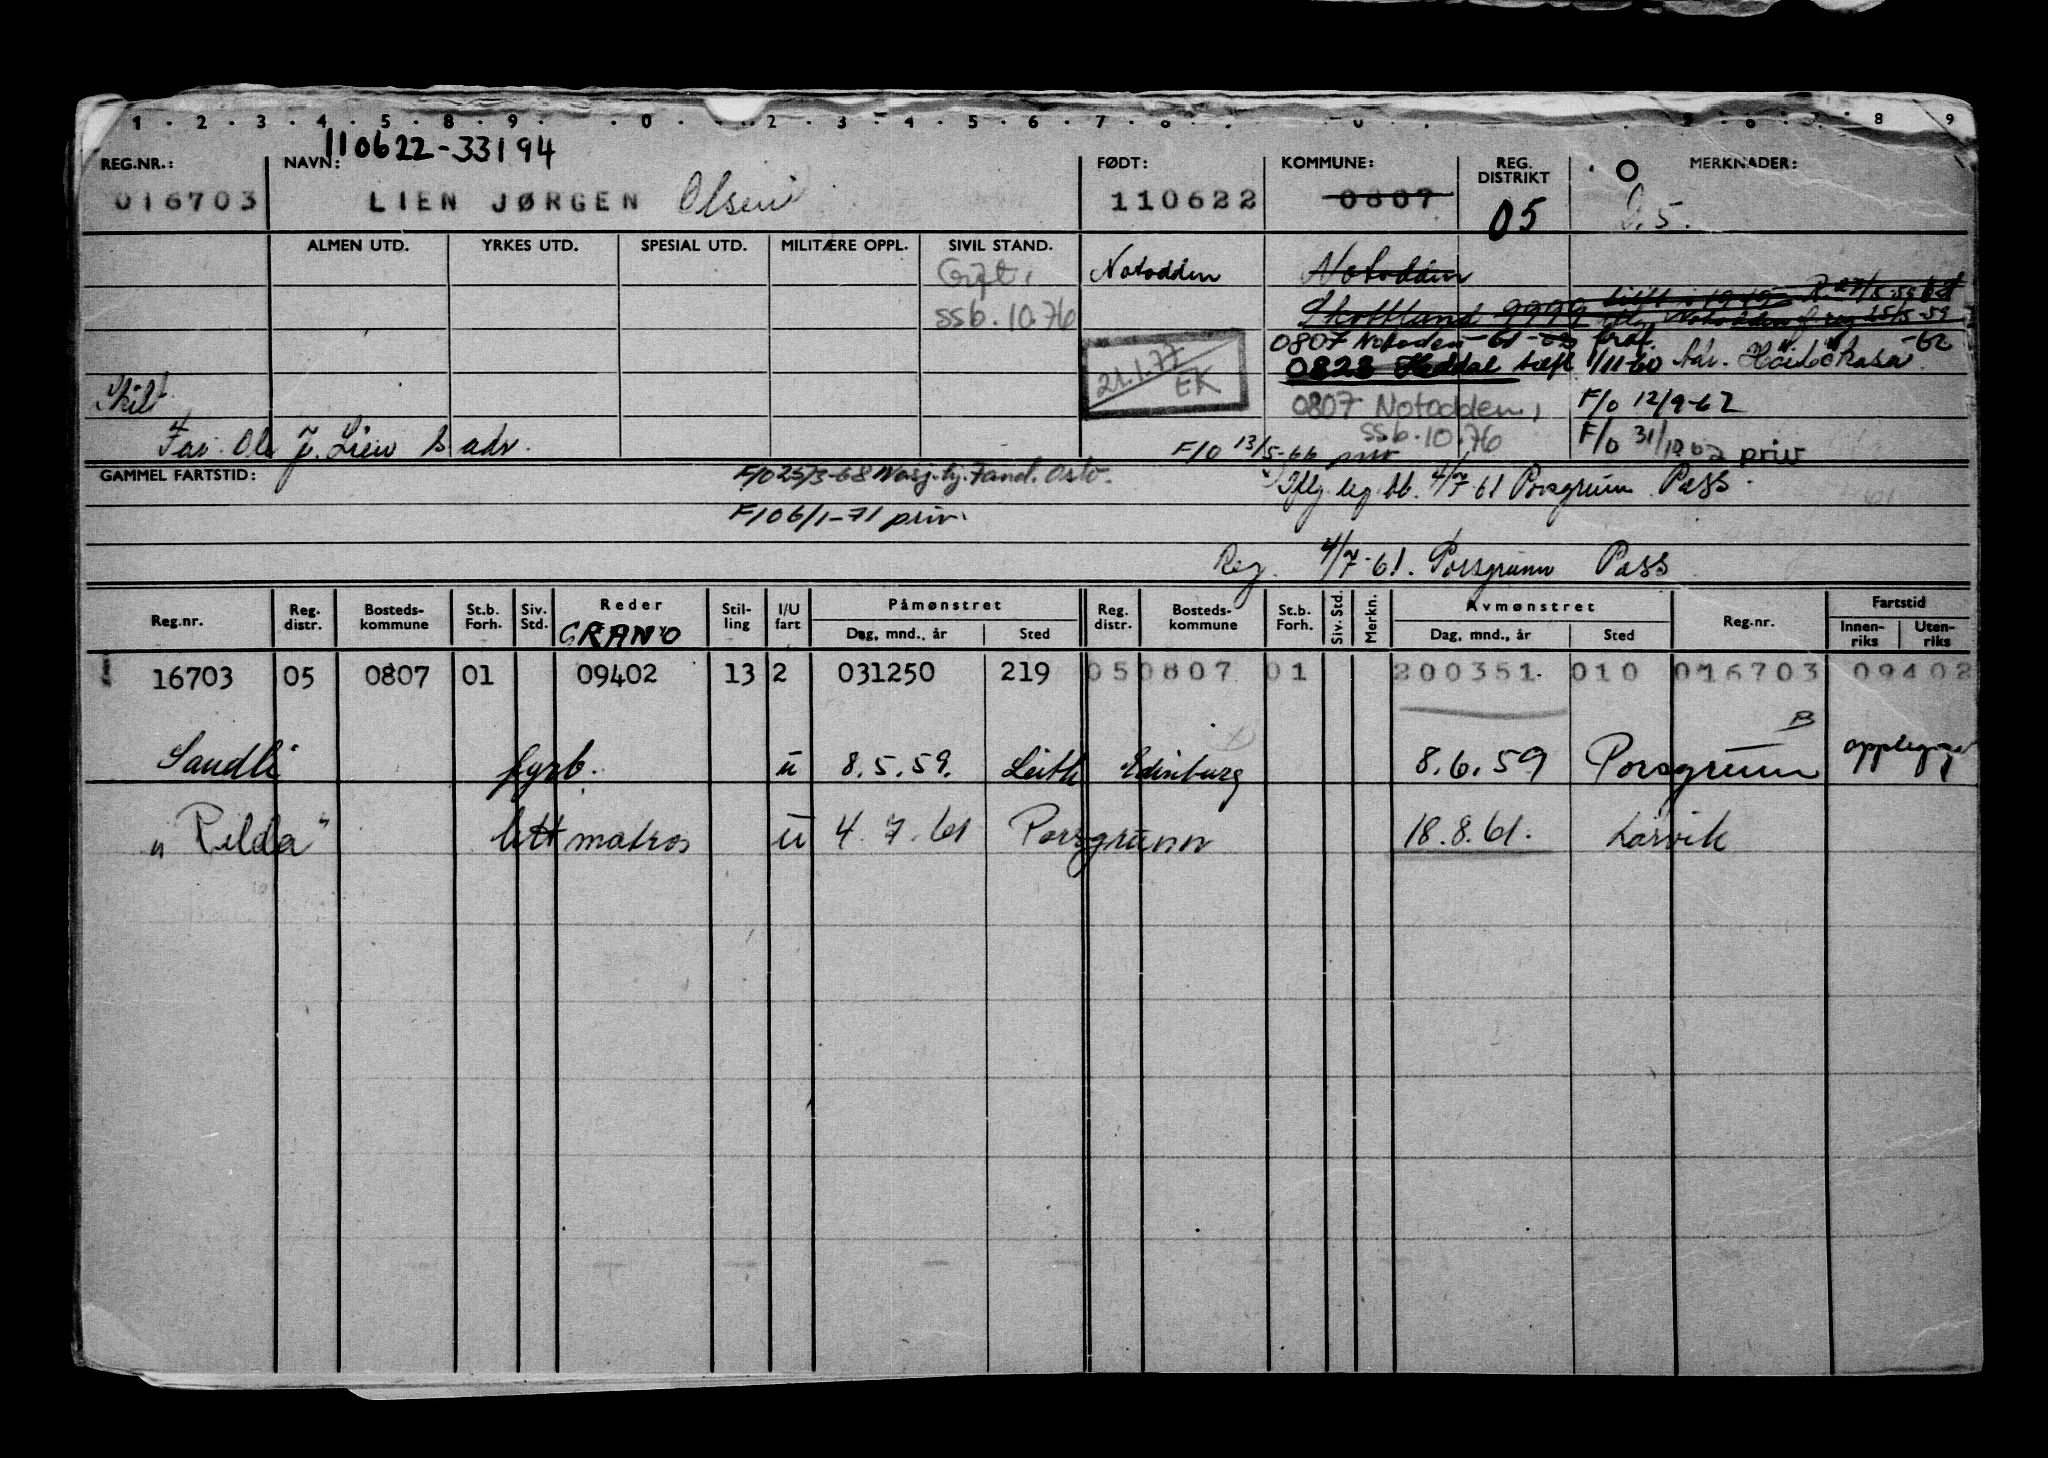 1 . 2 . 3 . 4 . 5 . 8 . 9 . 0 . 2 . 3 . 4 . 5 . 6 . 7 . 8 9
110622-33194
REG.NR.: NAVN: FØDT: KOMMUNE: REG. DISTRIKT MERKNADER:
016703 LIEN JØRGEN Olsen 110622 0807 05
ALMEN UTD. YRKES UTD. SPESIAL UTD. MILITÆRE OPPL. SIVIL STAND.
Gift, Notodden Notodden
ssb.10.76 Skottland 9999
0807 Notodden -61
21.1.77 EK 0823 Heddal 1/11-60
0807 Notodden, F/o 12/9-62
ssb.10.76 F/o 31/10 priv
Far Ole J. Lien s adr. F/o 13/5-66 priv
GAMMEL FARTSTID: F/O 25/3-68 Oslo. 4/7 61 Porsgrunn Pass.
F/O 6/1-71 priv.
Reg. 4/7-61. Porsgrunn Pass
Reg.nr. Reg. distr. Bosteds- kommune St.b. Forh. Siv. Std. Reder Stil- ling I/U fart Påmønstret Reg. distr. Bosteds- kommune St.b. Forh. Siv. Std. Merkn. Avmønstret Reg.nr. Fartstid
GRANO Dag, mnd., år Sted Dag, mnd., år Sted Innen- riks Uten- riks
16703 05 0807 01 09402 13 2 031250 219 05 0807 01 200351 010 016703 09402
B
Sandli fyrb. u 8.5.59. Leith Edinburg 8.6.59 Porsgrunn
"Rilda" lettmatros u 4.7.61 Porsgrunn 18.8.61. Larvik